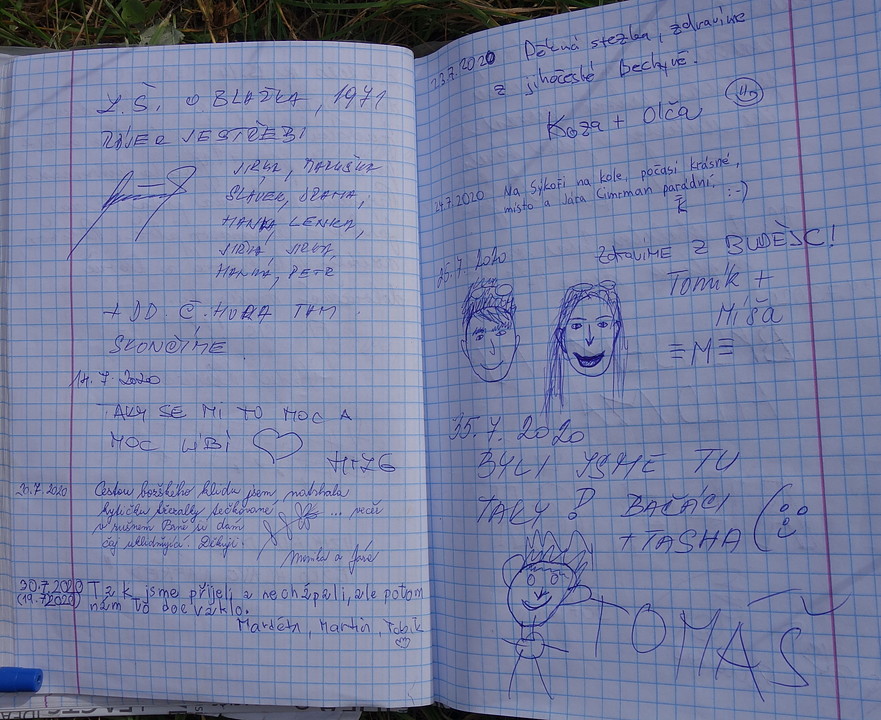 L.Š. O BLAŽKA, 1971
JESTŘEBI
JIRKA, MARUŠKA
SLAVEK, DRAHA,
HANKA, LENKA,
JIRKA, JIRKA,
HANKA, PETR
+ DD. Č. HURA TAM
SKONČÍME
14.7.2020
TAKY SE MI TO MOC A
MOC LÍBÍ
20.7.2020 Cestou božského klidu jsem natrhala
kytičku ... večer
v rušném Brně si dám
čaj uklidňující. Děkuji.
Monika a Jára
30.7.2020 Tak jsme přijeli a nechápali, ale potom
(19.7.2020) nám to docvaklo.
Markéta, Martin, Tobík
23.7.2020 Pěkná stezka, zdravíme
z jihočeské Bechyně.
Koza + Olča
24.7.2020 Na Sýkoři na kole, počasí krásné,
místo a Jára Cimrman parádní. :-)
25.7.2020
ZDRAVÍME Z BUDĚJC!
Tomík +
Míša
≡M≡
25.7.2020
BYLI JSME TU
TAKY! BAČÁCI
+ TASHA
TOMÁŠ